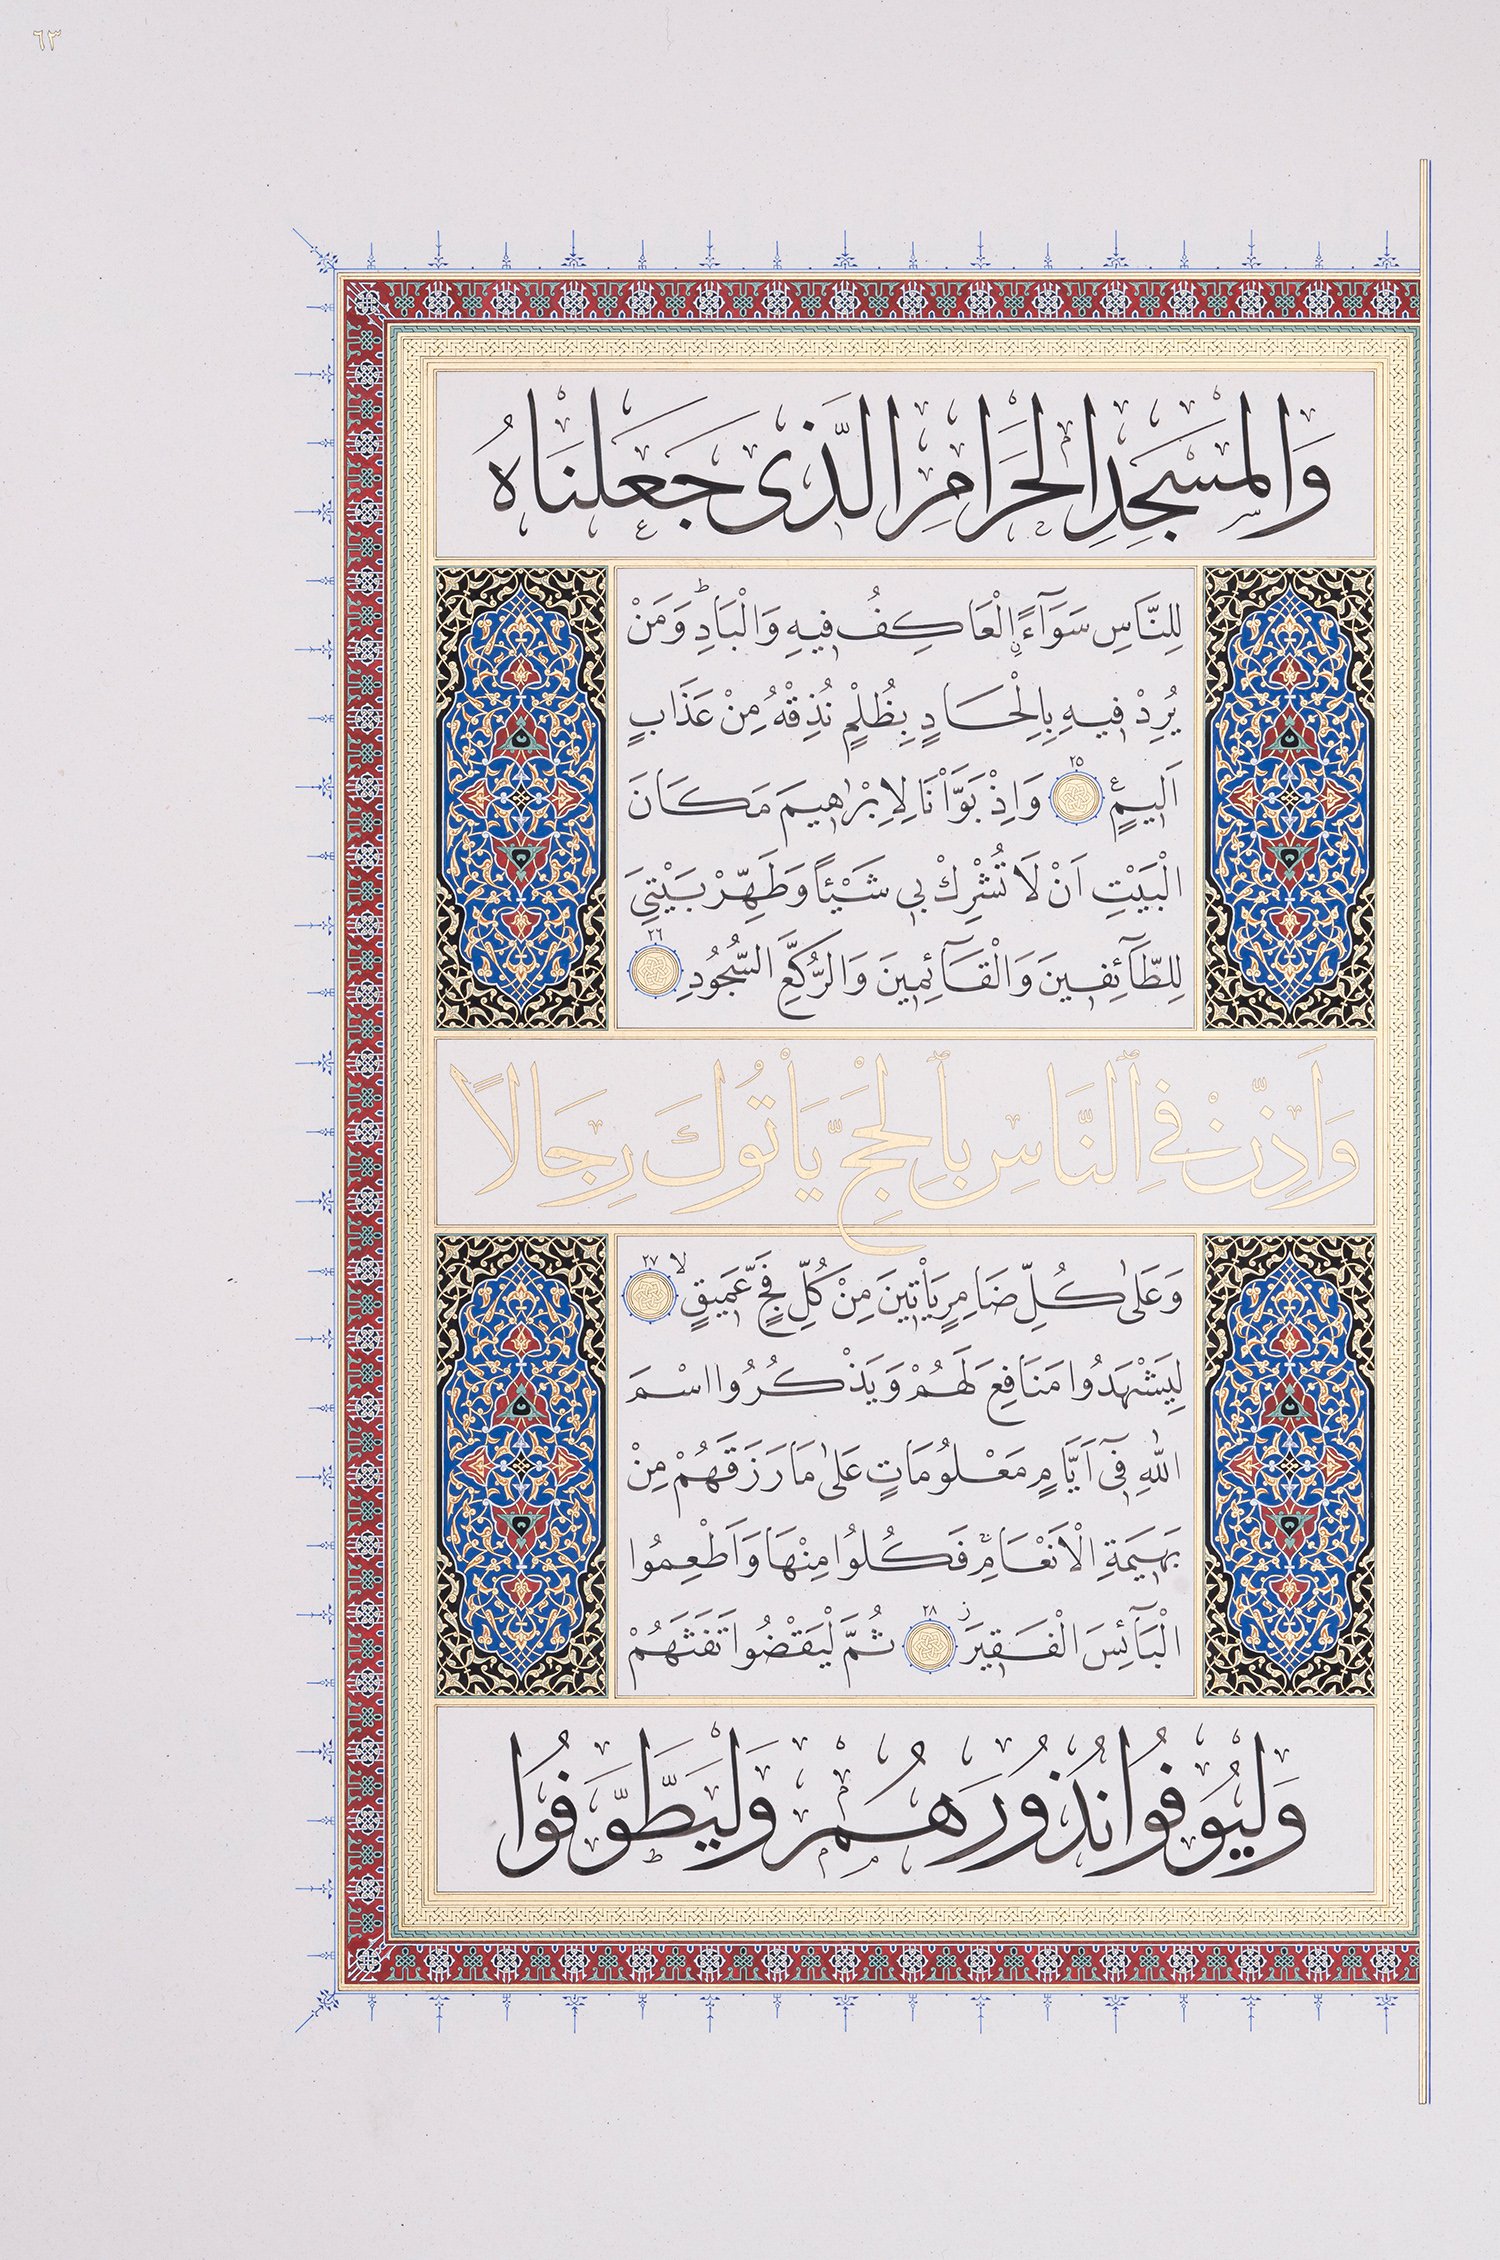 ٦٣
وَالْمَسْجِدِ الْحَرَامِ الَّذى جَعَلْنَاهُ
لِلنَّاسِ سَوَآءً اِلْعَاكِفُ فِيهِ وَالْبَادِۜ وَمَنْ
يُرِدْ فِيهِ بِاِلْحَادٍ بِظُلْمٍ نُذِقْهُ مِنْ عَذَابٍ
اَلِيمٍ ٢٥ وَاِذْ بَوَّأْنَا لِاِبْرٰهِيمَ مَكَانَ
الْبَيْتِ اَنْ لَا تُشْرِكْ بِي شَيْئًا وَطَهِّرْ بَيْتِيَ
لِلطَّآئِفِينَ وَالْقَآئِمِينَ وَالرُّكَّعِ السُّجُودِ ٢٦
وَأَذِّنْ فِي ٱلنَّاسِ بِٱلْحَجِّ يَأْتُوكَ رِجَالًا
وَعَلٰى كُلِّ ضَامِرٍ يَأْتِينَ مِنْ كُلِّ فَجٍّ عَمِيقٍ ٢٧
لِيَشْهَدُوا مَنَافِعَ لَهُمْ وَيَذْكُرُوا اسْمَ
اللّٰهِ فِىٓ اَيَّامٍ مَعْلُومَاتٍ عَلٰى مَا رَزَقَهُمْ مِنْ
بَهِيمَةِ الْاَنْعَامِ فَكُلُوا مِنْهَا وَاَطْعِمُوا
الْبَآئِسَ الْفَقِيرَ ٢٨ ثُمَّ لْيَقْضُوا تَفَثَهُمْ
وَلْيُوفُوا نُذُورَهُمْ وَلْيَطَّوَّفُوا